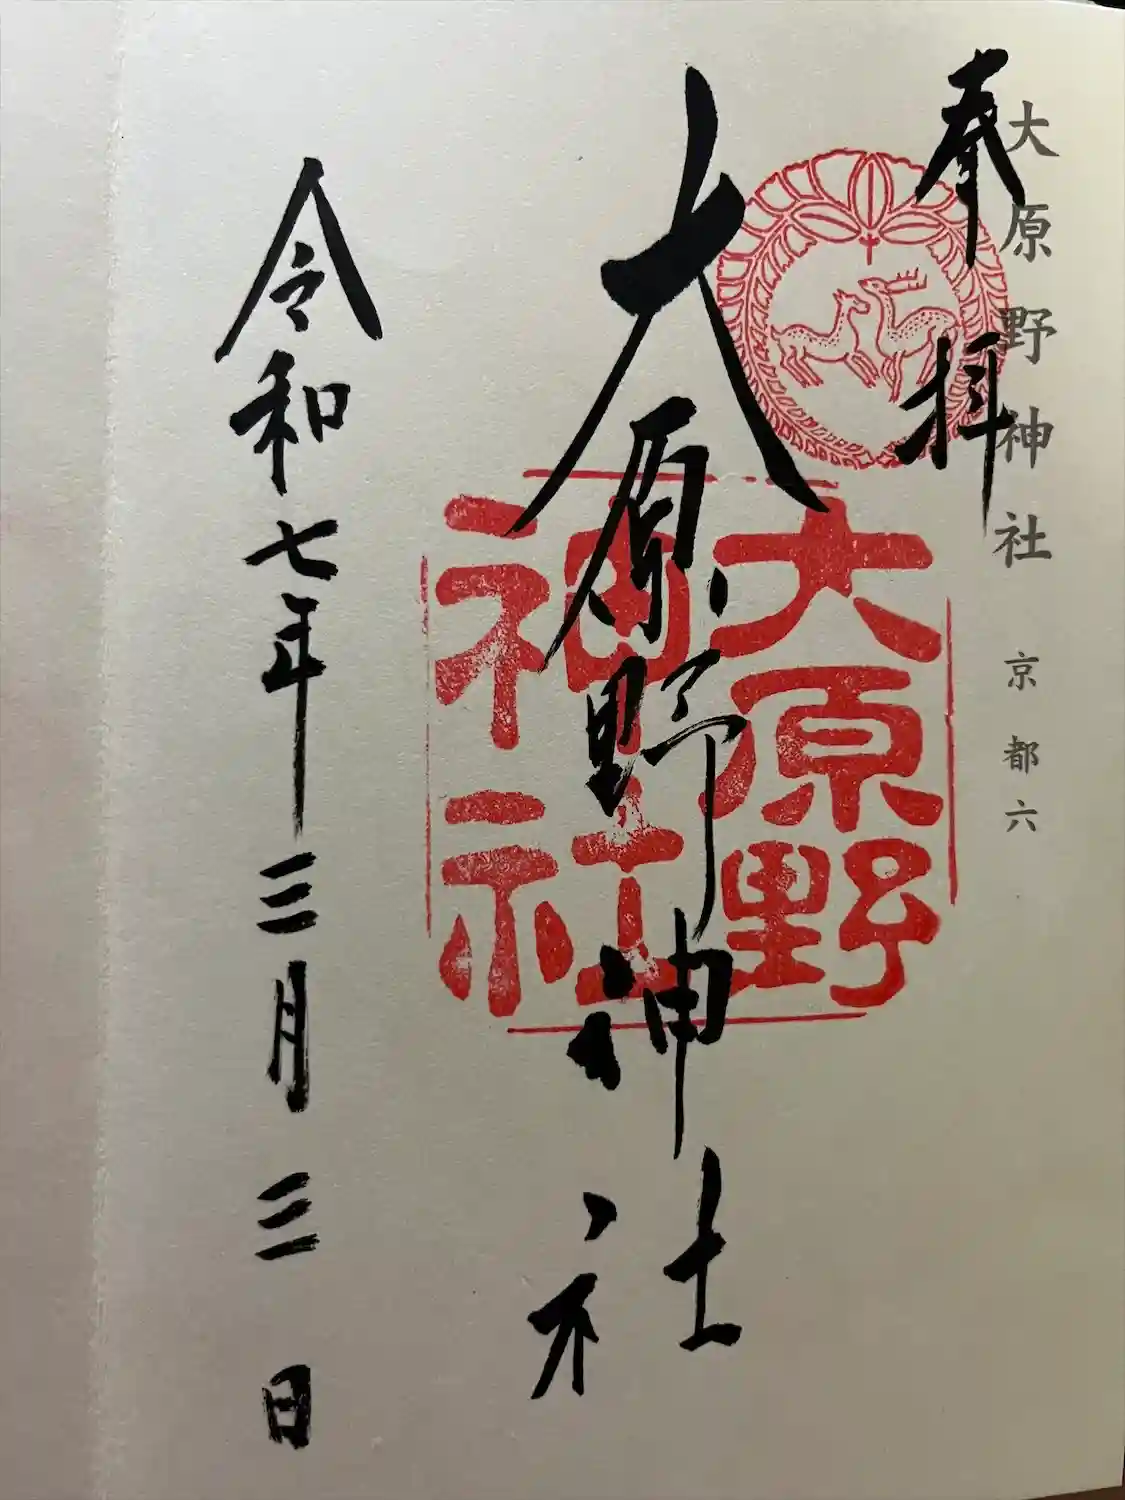 大原野神社 京都六
奉拝
大原野神社
大原野神社
令和七年三月三日